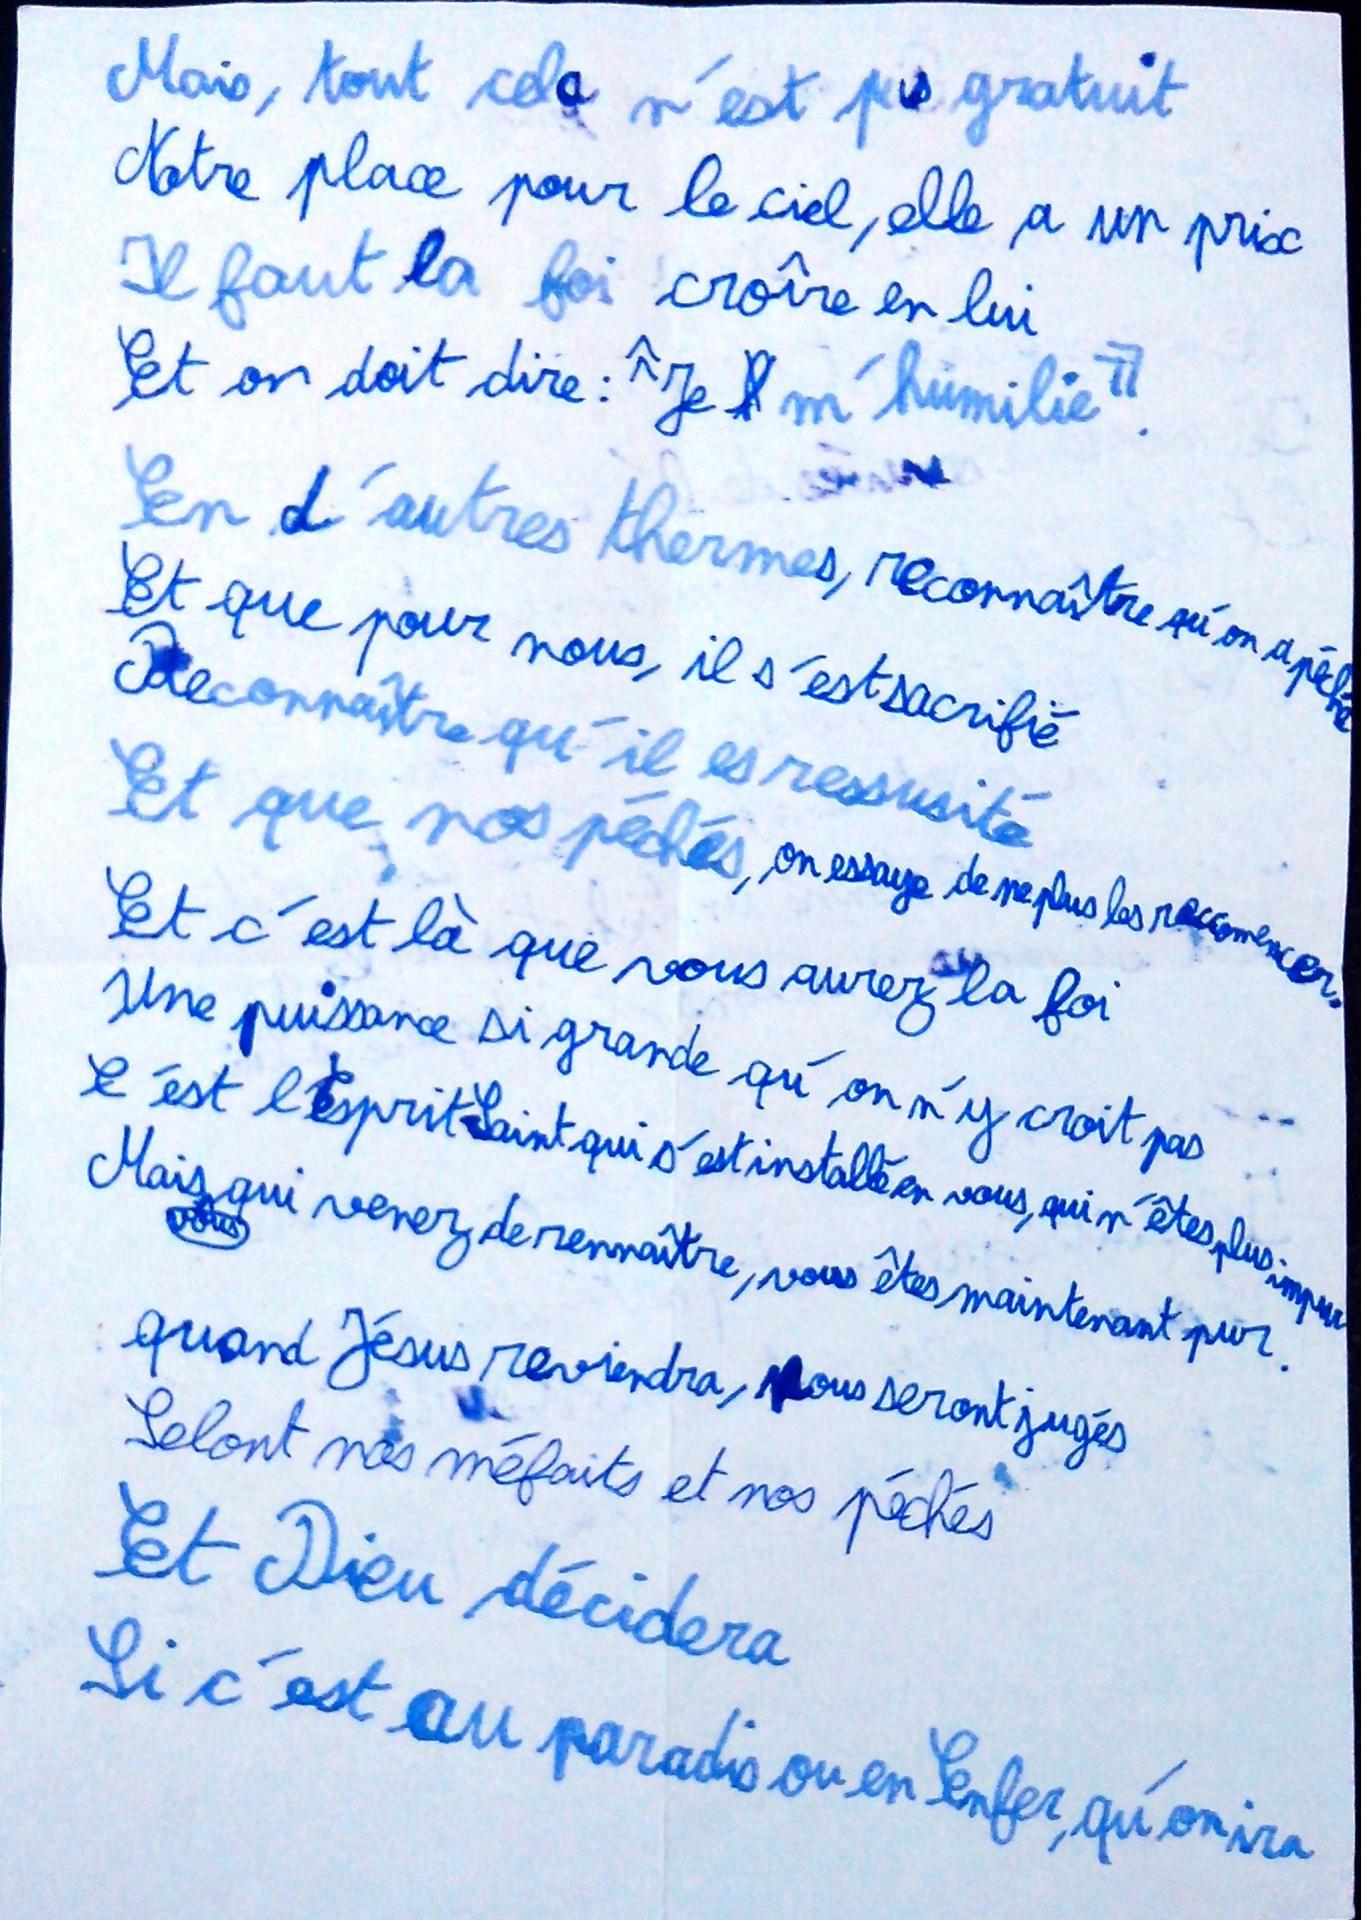 Mais, tout cela n'est pas gratuit
Notre place pour le ciel, elle a un prix
Il faut la foi croîre en lui
Et on doit dire: "Je m'humilie".
En d'autres thermes, reconnaître qu'on a péché
Et que pour nous, il s'est sacrifié
Reconnaître qu'il es ressusité
Et que nos péchés, on essaye de ne plus les reccomencer.
Et c'est là que vous aurez la foi
Une puissance si grande qu'on n'y croit pas
C'est l'Esprit-Saint qui s'est installé en vous, qui n'êtes plus impur
Mais vous qui venez de rennaître, vous êtes maintenant pur.
quand Jésus reviendra, nous seront jugés
Selont nos méfaits et nos péchés
Et Dieu décidera
Si c'est au paradis ou en Enfer, qu'on ira